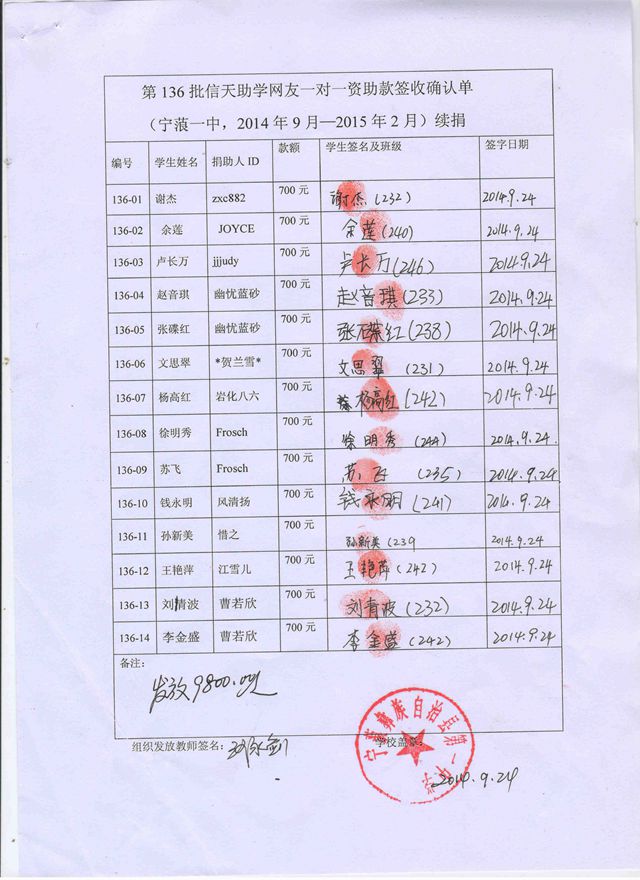 第 136 批信天助学网友一对一资助款签收确认单
（宁蒗一中，2014 年 9 月—2015 年 2 月）续捐
编号 学生姓名 捐助人 ID 款额 学生签名及班级 签字日期
136-01 谢杰 zxc882 700 元 谢杰(232) 2014.9.24
136-02 余莲 JOYCE 700 元 余莲(240) 2014.9.24
136-03 卢长万 jjjudy 700 元 卢长万(246) 2014.9.24
136-04 赵音琪 幽忧蓝砂 700 元 赵音琪(233) 2014.9.24
136-05 张碟红 幽忧蓝砂 700 元 张碟红(238) 2014.9.24
136-06 文思翠 *贺兰雪* 700 元 文思翠(231) 2014.9.24
136-07 杨高红 岩化八六 700 元 杨高红(242) 2014.9.24
136-08 徐明秀 Frosch 700 元 徐明秀(244) 2014.9.24.
136-09 苏飞 Frosch 700 元 苏飞(235) 2014.9.24
136-10 钱永明 风清扬 700 元 钱永明(241) 2014.9.24
136-11 孙新美 惜之 700 元 孙新美(239 2014.9.24
136-12 王艳萍 江雪儿 700 元 王艳萍(242) 2014.9.24
136-13 刘青波 曹若欣 700 元 刘青波(232) 2014.9.24
136-14 李金盛 曹若欣 700 元 李金盛(242) 2014.9.24
备注：
发放9800.00元
组织发放教师签名： 学校盖章：
宁蒗彝族自治县第一中学
2014.9.24